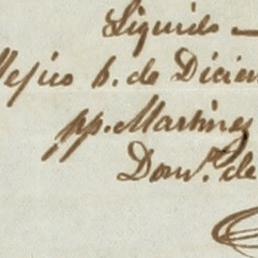 Liquido
Mejico 6. de Diciem
pp. Martinez
Dom.º de